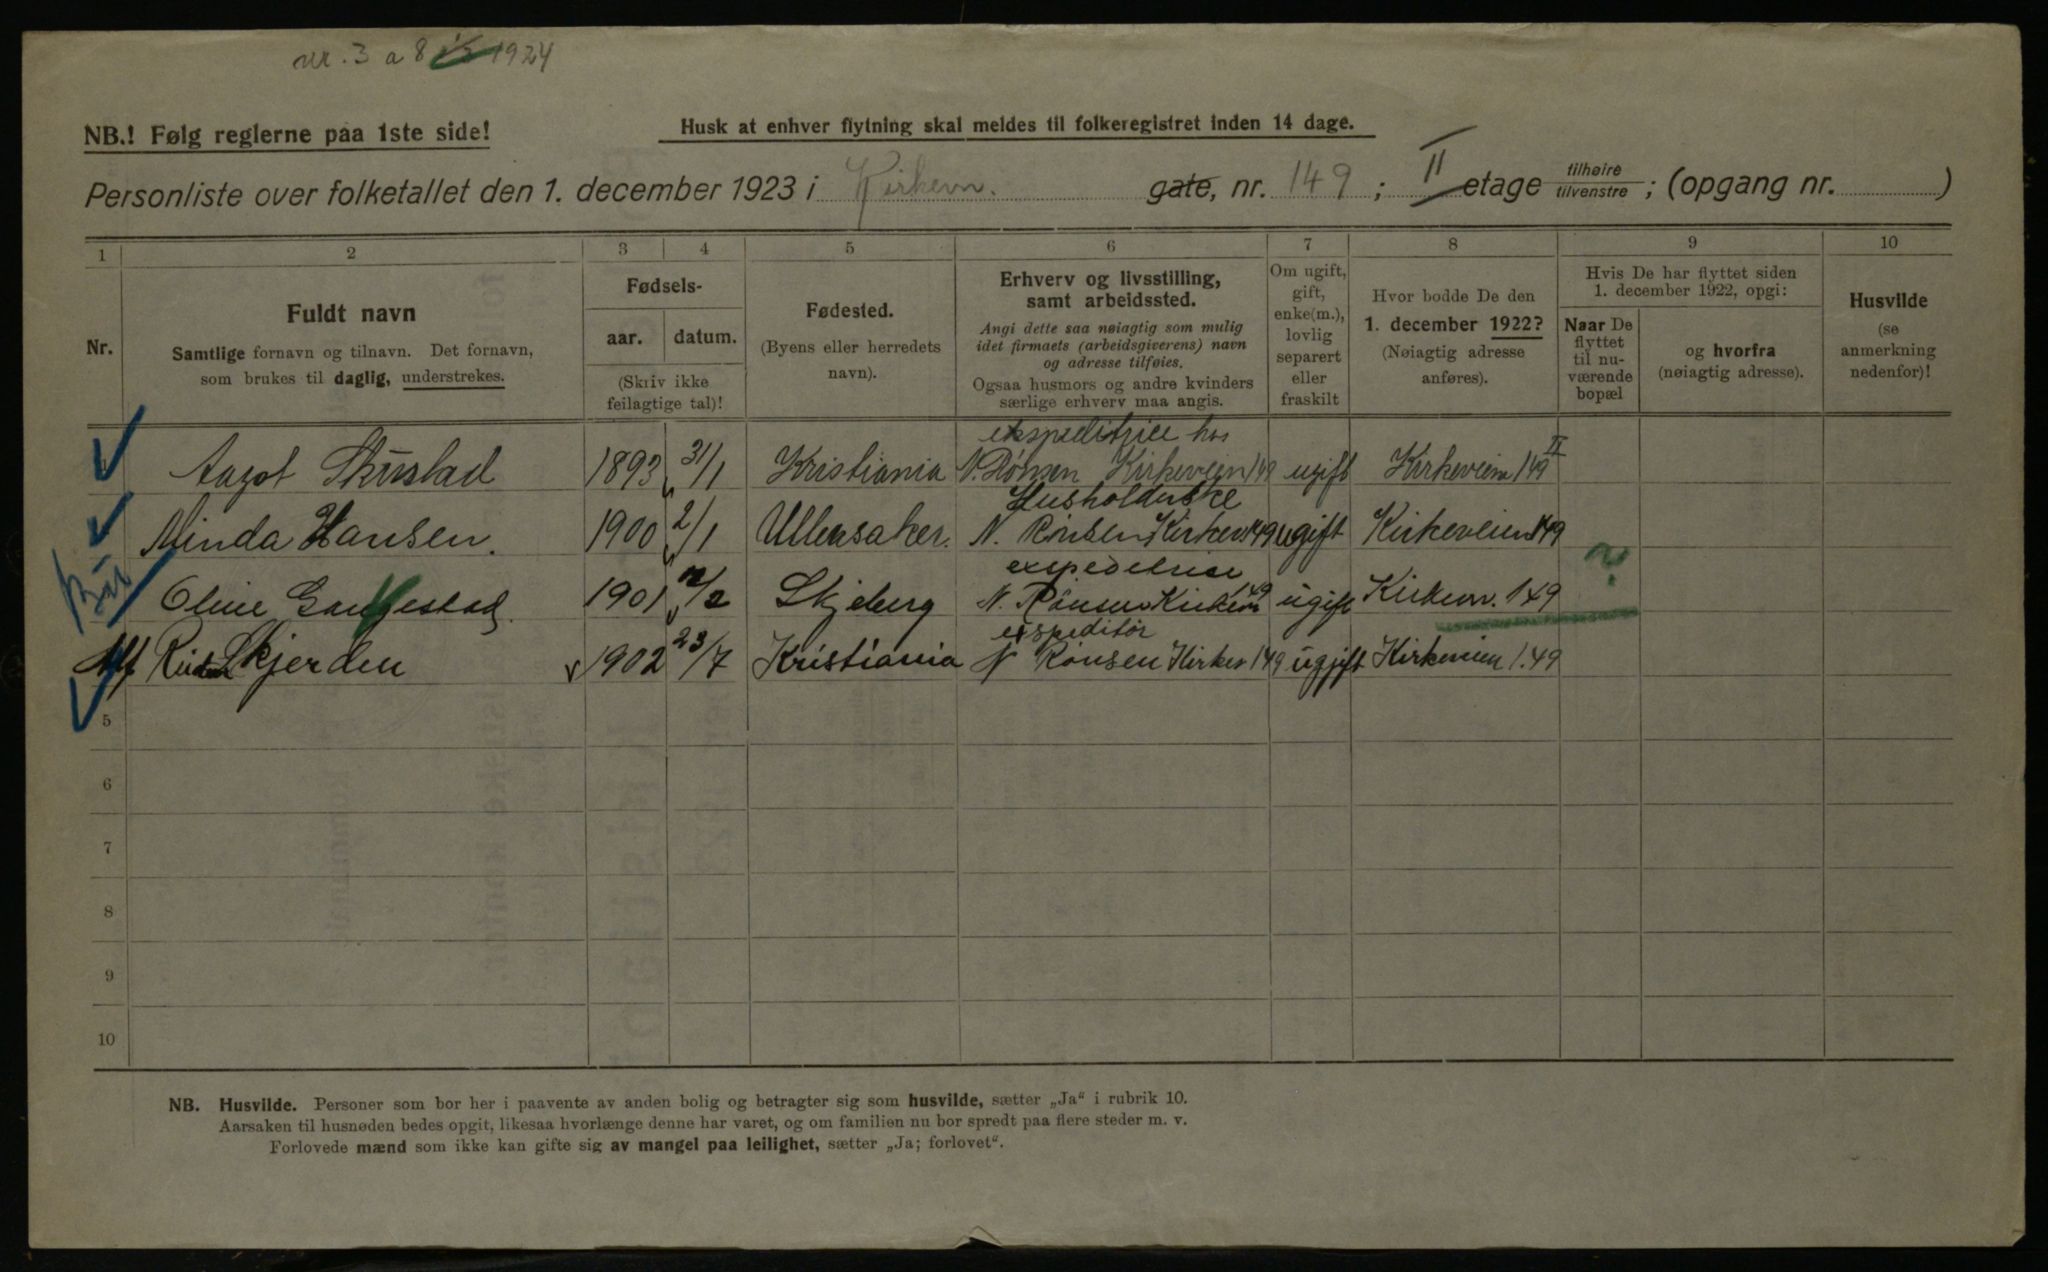 nr. 3 a 8 1924
NB.! Følg reglerne paa 1ste side!
Husk at enhver flytning skal meldes til folkeregistret inden 14 dage.
Personliste over folketallet den 1. december 1923 i Kirkevn. gate, nr. 149 ; II etage tilhøire tilvenstre ; (opgang nr. )
1 2 3 4 5 6 7 8 9 10
Nr.
Fuldt navn
Samtlige fornavn og tilnavn. Det fornavn,
som brukes til daglig, understrekes.
Fødsels-
aar. datum.
(Skriv ikke
feilagtige tal)!
Fødested.
(Byens eller herredets
navn).
Erhverv og livsstilling,
samt arbeidssted.
Angi dette saa nøiagtig som mulig
idet firmaets (arbeidsgiverens) navn
og adresse tilføies.
Ogsaa husmors og andre kvinders
særlige erhverv maa angis.
Om ugift,
gift,
enke(m.),
lovlig
separert
eller
fraskilt
Hvor bodde De den
1. december 1922?
(Nøiagtig adresse
anføres).
Hvis De har flyttet siden
1. december 1922, opgi:
Naar De
flyttet
til nu-
værende
bopæl
og hvorfra
(nøiagtig adresse).
Husvilde
(se
anmerkning
nedenfor)!
ekspeditrice hos
Aagot Skustad 1893 31/1 Kristiania N. Rønsen Kirkeveien 149 ugift Kirkeveien 149 II
Husholderske
Minda Hansen. 1900 2/1 Ullensaker. N. Rönsen Kirkev 149 ugift Kirkeveien 149
expeditrise
Oline Gangestad. 1901 12/2 Skjeberg N. Rönsen Kirkevn 149 ugift Kirkevn. 149 ?
expeditör
Skjerden 1902 23/7 Kristiania N Rönsen Kirkev 149 ugift Kirkeveien 149
5
6
7
8
9
10
NB. Husvilde. Personer som bor her i paavente av anden bolig og betragter sig som husvilde, sætter „Ja“ i rubrik 10.
Aarsaken til husnøden bedes opgit, likesaa hvorlænge denne har varet, og om familien nu bor spredt paa flere steder m. v.
Forlovede mænd som ikke kan gifte sig av mangel paa leilighet, sætter „Ja; forlovet“.